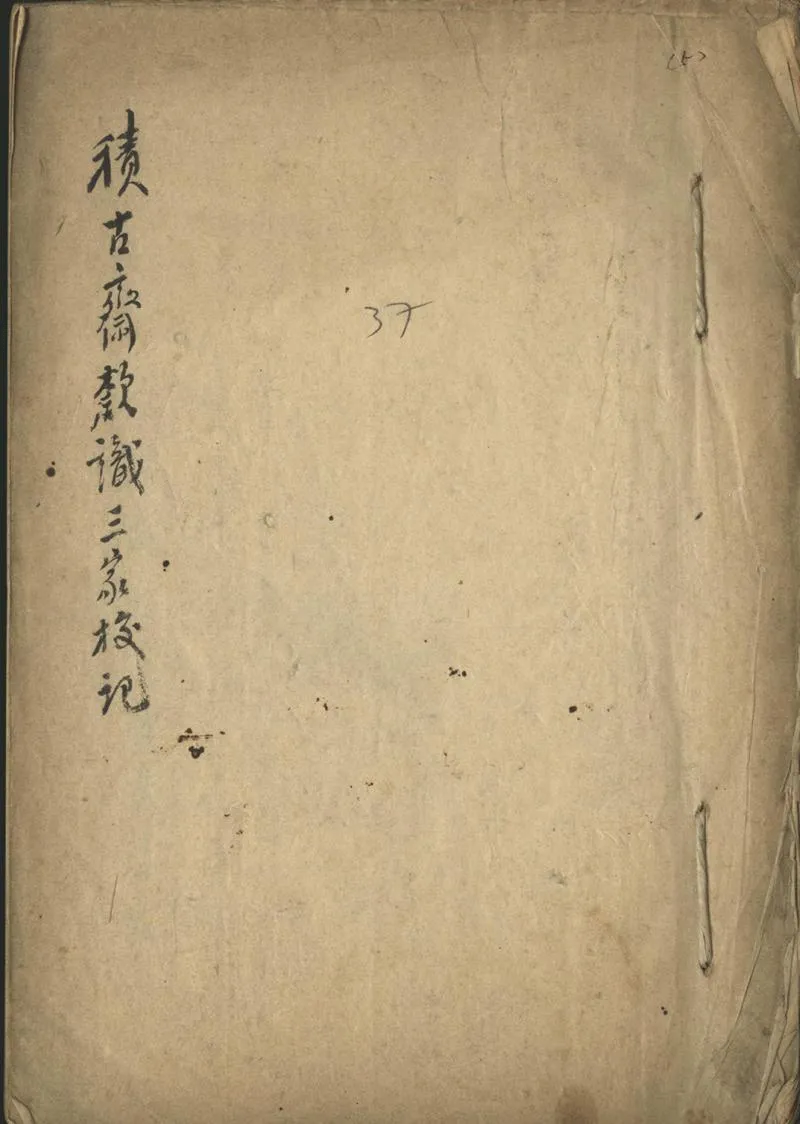 (5)
37
積古齋款識三家校記